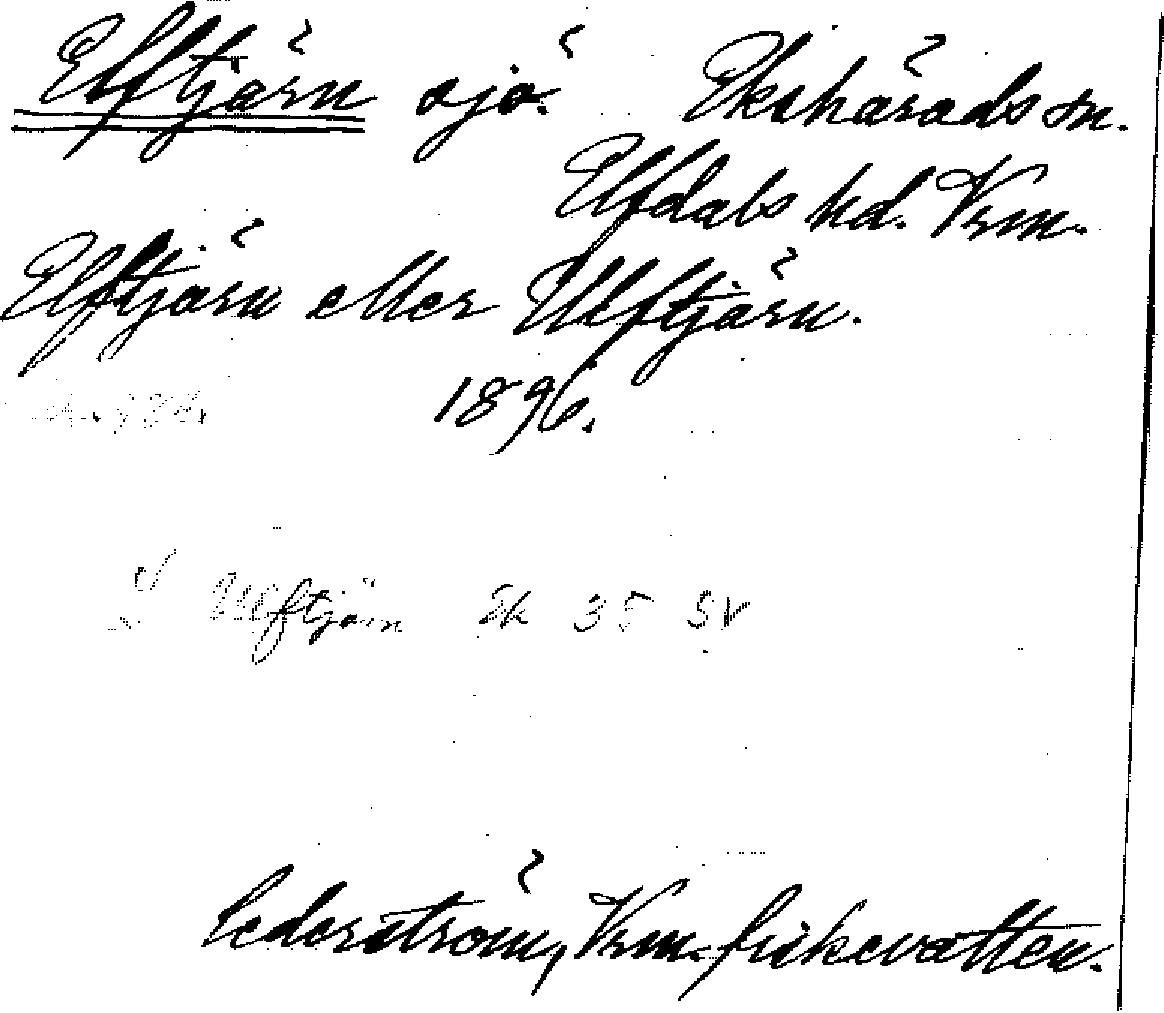 Elftjärn sjö. Ekshärads sn.
Elfdals hd. Vrm.
Elftjärn eller Ulftjärn.
1896.
Ulftjärn Ek 35 SV
Cederström, Vrm. fiskevatten.